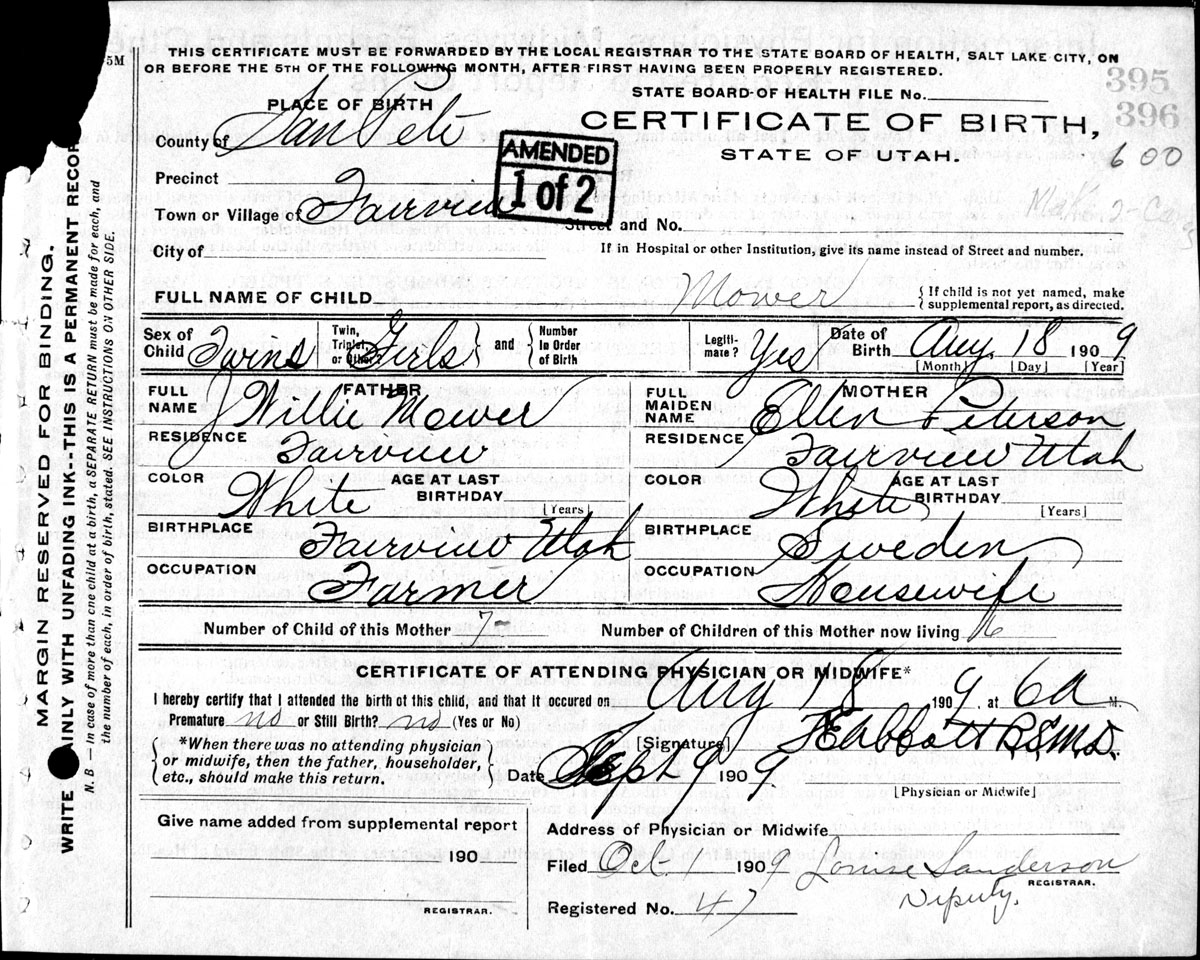 5M
THIS CERTIFICATE MUST BE FORWARDED BY THE LOCAL REGISTRAR TO THE STATE BOARD OF HEALTH, SALT LAKE CITY, ON
OR BEFORE THE 5TH OF THE FOLLOWING MONTH, AFTER FIRST HAVING BEEN PROPERLY REGISTERED.
395
396
STATE BOARD OF HEALTH FILE No.
PLACE OF BIRTH
CERTIFICATE OF BIRTH,
STATE OF UTAH.
600
County of San Pete
AMENDED
1 of 2
Precinct
Town or Village of Fairview
Street and No.
City of
If in Hospital or other Institution, give its name instead of Street and number.
FULL NAME OF CHILD Mower { If child is not yet named, make
supplemental report, as directed.
Sex of Child Twins Twin, Triplet, or Other Girls } and { Number in Order of Birth Legiti- mate? Yes Date of Birth Aug. 18 1909
[Month] [Day] [Year]
FATHER
FULL NAME Willie Mower
RESIDENCE Fairview
COLOR White AGE AT LAST BIRTHDAY [Years]
BIRTHPLACE Fairview Utah
OCCUPATION Farmer
MOTHER
FULL MAIDEN NAME Ellen Peterson
RESIDENCE Fairview Utah
COLOR White AGE AT LAST BIRTHDAY [Years]
BIRTHPLACE Sweden
OCCUPATION Housewife
Number of Child of this Mother 7 Number of Children of this Mother now living
CERTIFICATE OF ATTENDING PHYSICIAN OR MIDWIFE*
I hereby certify that I attended the birth of this child, and that it occured on Aug 18 1909 at 6a M.
Premature no or Still Birth? no (Yes or No)
{ *When there was no attending physician
or midwife, then the father, householder,
etc., should make this return. }
[Signature]
Date Sept 9 1909
[Physician or Midwife]
Give name added from supplemental report
190
REGISTRAR.
Address of Physician or Midwife
Filed Oct. 1 1909 Louise Sanderson
REGISTRAR.
Deputy.
Registered No. 47
MARGIN RESERVED FOR BINDING.
WRITE AINLY WITH UNFADING INK--THIS IS A PERMANENT RECOR
N. B.—In case of more than one child at a birth, a SEPARATE RETURN must be made for each, and
the number of each, in order of birth, stated. SEE INSTRUCTIONS ON OTHER SIDE.